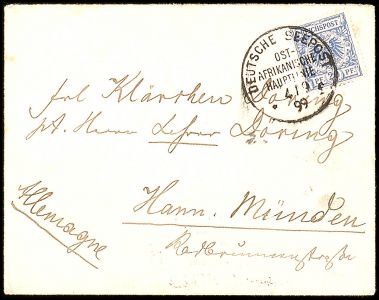 DEUTSCHE SEEPOST
OST-
AFRIKANISCHE
HAUPTLINIE
99
REICHSPOST
PF.
Frl Klärchen Döring
pt. Herrn Lehrer Döring
Hann. Münden
Allemagne